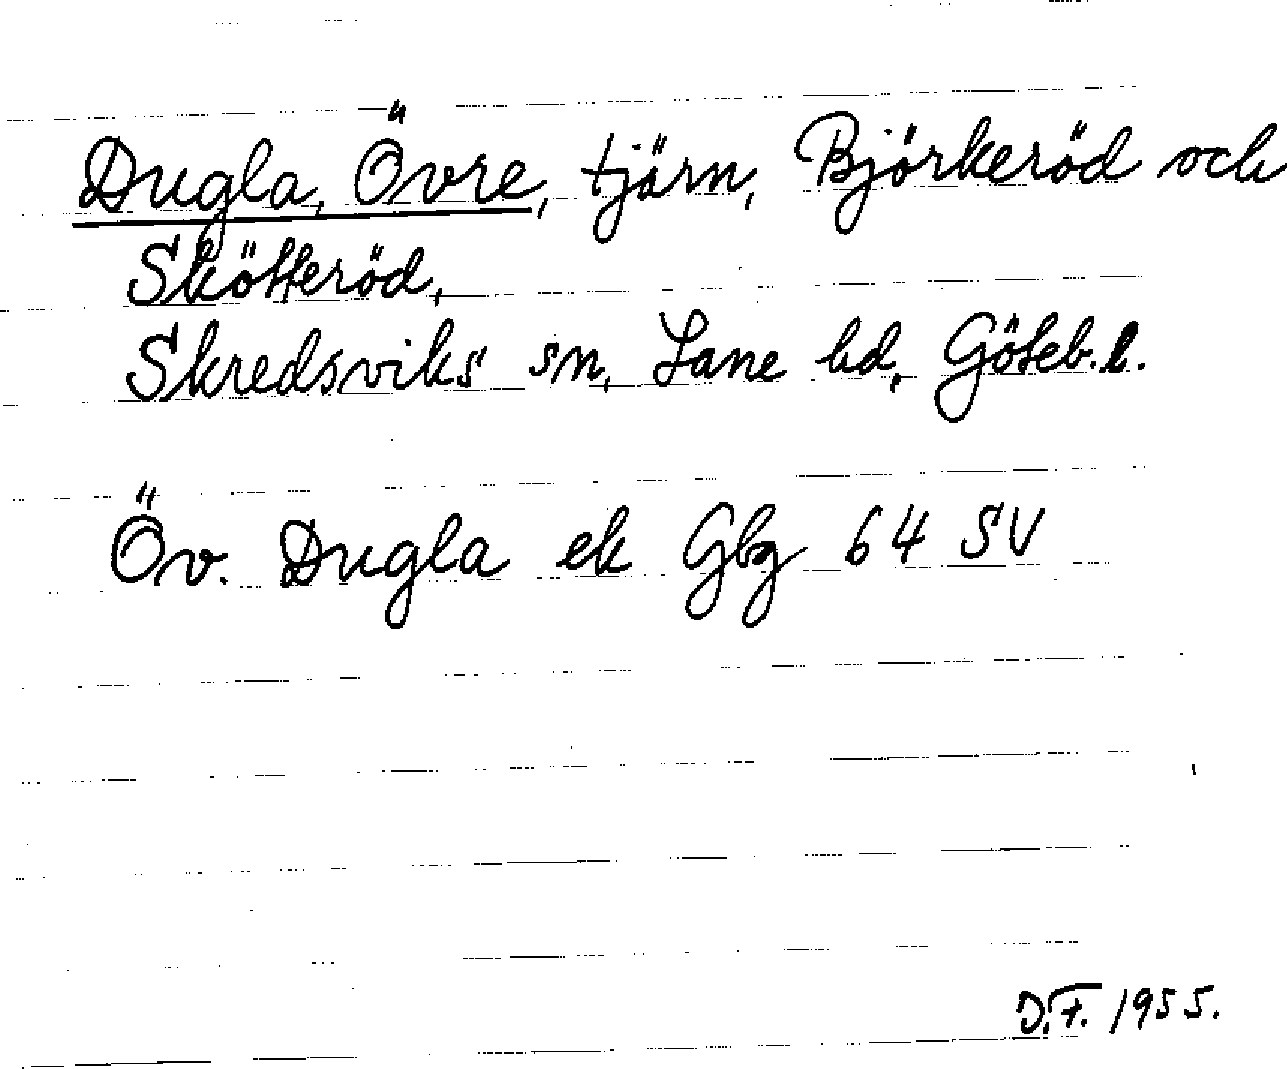 Dugla, Övre, tjärn, Björkeröd och
Skötteröd,
Skredsviks sn, Lane hd, Göteb. l.
Öv. Dugla ek Gbg 64 SV
D.F. 1955.